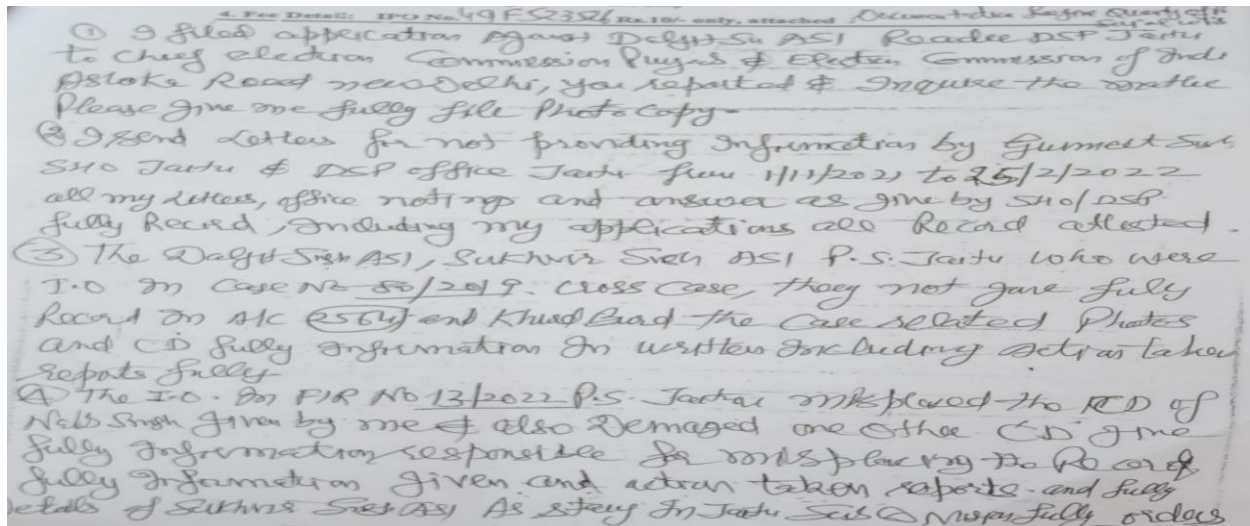 4. Fee Detail: IPO No. 49F 523526 Rs.10/- only, attached
① I filed application Against Daljit Sin ASI Reader DSP Jaitu
to Cheif election Commission Punjab & Election Commission of Indi
Ashoka Road new Delhi, you reported & Inquire the matter
Please give me fully file Photo Copy-
② I send Letters for not providing Information by Gurmeet
SHO Jaitu & DSP office Jaitu from 1/11/2021 to 25/2/2022
all my Letters, office notings and answer as give by SHO/DSP.
fully Record, Including my applications all Record attested.
③ The Daljit Singh ASI, Sukhvir Singh ASI P.S. Jaitu who were
I.O In Case No 80/2019. Cross case, they not gave fully
Record In A/c 2564 and Khurd Burd the Case related Photos
and CD fully Information In written Including action taken
reports fully-
④ The I.O. In FIR No 13/2022 P.S. Jaitu misplaced the CD of
Naib Singh given by me & also Demaged one other CD give
fully Information responsible for misplacing the Record
fully Information given and action taken reports. and fully
Details of Sukhvir Singh ASI As stay In Jaitu fully orders